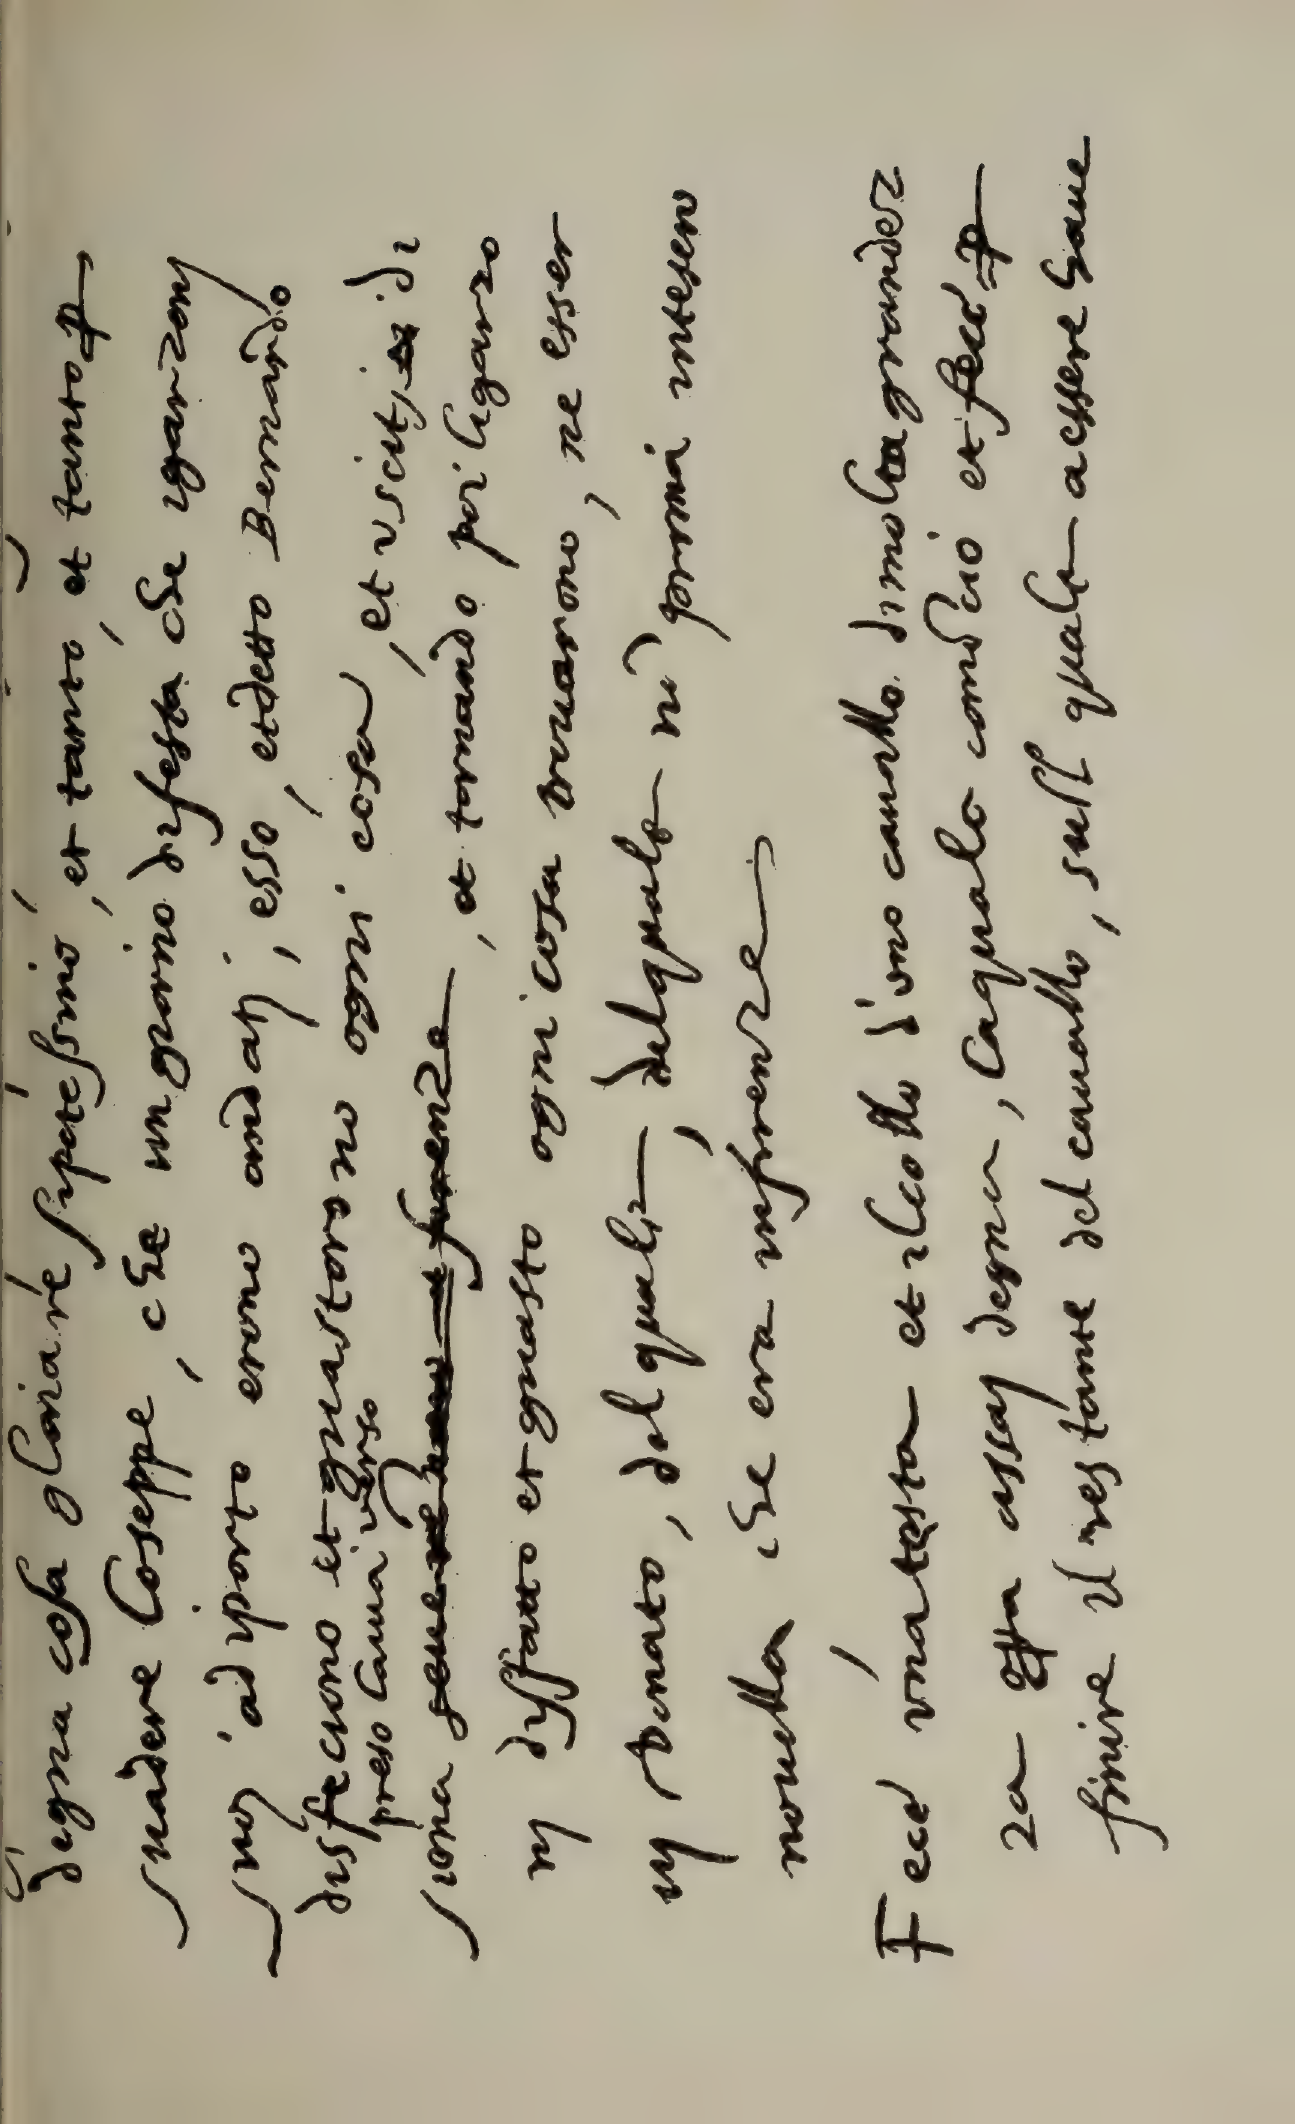 degna cosa gloriare si potessino, et tanto, et tanto p
suadere Coseppe, che un giorno di festa che i garzoni
suoi a diporto erono andati, esso, et detto Bernardo
disfeciono et guastorono ogni cosa, et usciti di
preso la via verso
siena, et tornando poi li garzo
ni disfatto et guasto ogni cosa trovarono, ne esser
vi Donato, del quale, del quale ni prima intesero
novella che era in firenze
Fece una testa et il collo d'uno cavallo di molta grandez
za assai degna, la quale cominciò et fece p
finire il restante del cavallo, sull quale a essere have